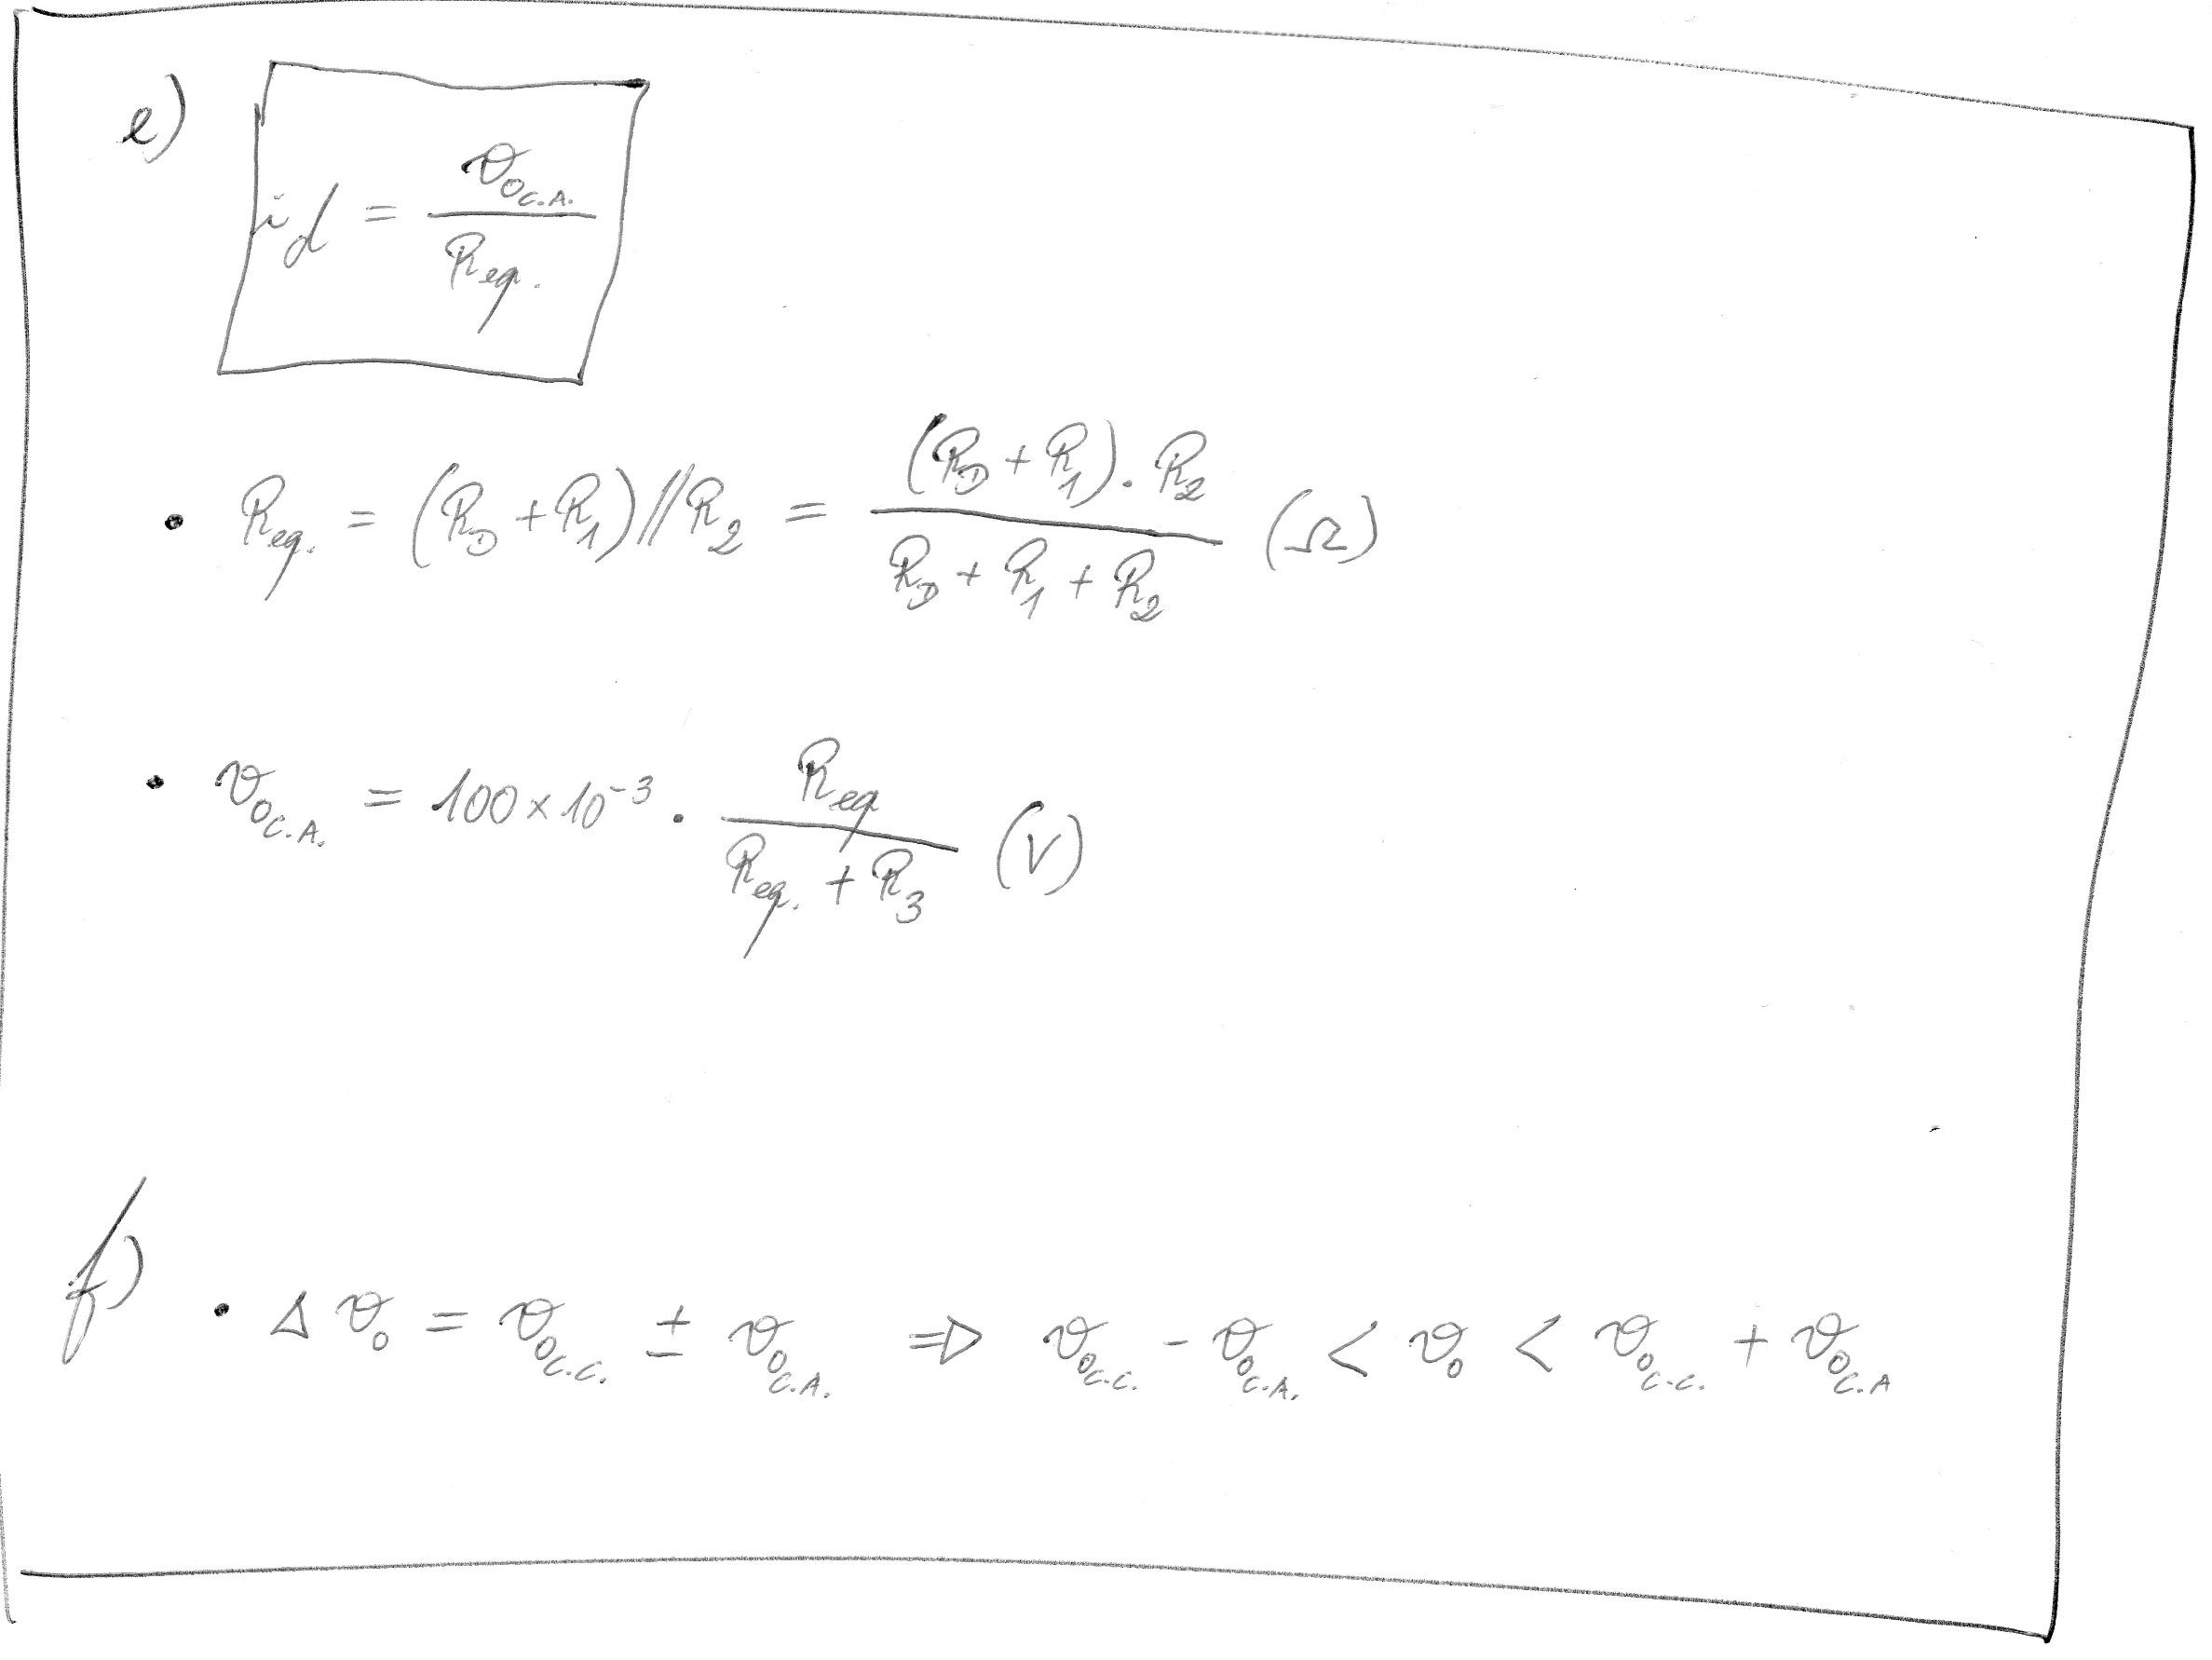 e)
i_d = v_{o_{C.A.}} / R_{eq.}
• R_{eq.} = (R_D + R_1) // R_2 = (R_D + R_1) . R_2 / R_D + R_1 + R_2 (Ω)
• v_{o_{C.A.}} = 100 × 10^{-3} . R_{eq} / R_{eq.} + R_3 (V)
f) • Δ v_o = v_{o_{C.C.}} ± v_{o_{C.A.}} ⇒ v_{o_{C.C.}} - v_{o_{C.A.}} < v_o < v_{o_{C.C.}} + v_{o_{C.A}}